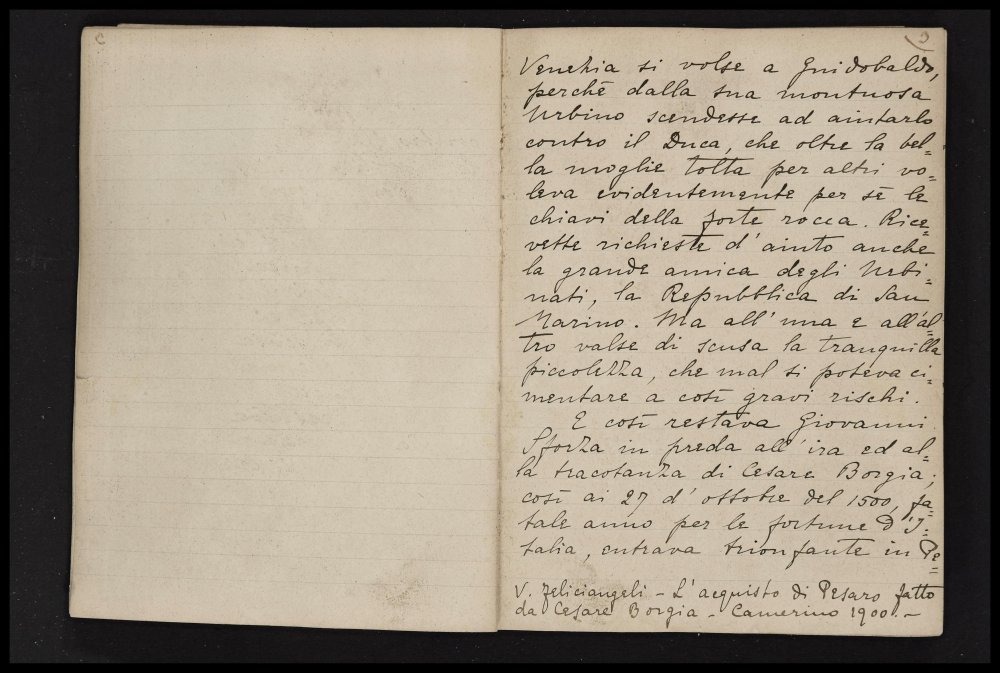 Venezia si volse a Guidobaldo,
perchè dalla sua montuosa
Urbino scendesse ad aiutarlo
contro il Duca, che oltre la bel=
la moglie tolta per altri vo=
leva evidentemente per sè le
chiavi della forte rocca. Rice=
vette richieste d'aiuto anche
la grande amica degli Urbi=
nati, la Repubblica di San
Marino. Ma all'una e all'al=
tro valse di scusa la tranquilla
piccolezza, che mal si poteva ci=
mentare a così gravi rischi.
E così restava Giovanni
Sforza in preda all'ira ed al=
la tracotanza di Cesare Borgia;
così ai 27 d'ottobre del 1500, fa=
tale anno per le fortune d'I=
talia, entrava trionfante in Pe=
V. Feliciangeli - L'acquisto di Pesaro fatto
da Cesare Borgia - Camerino 1900. -